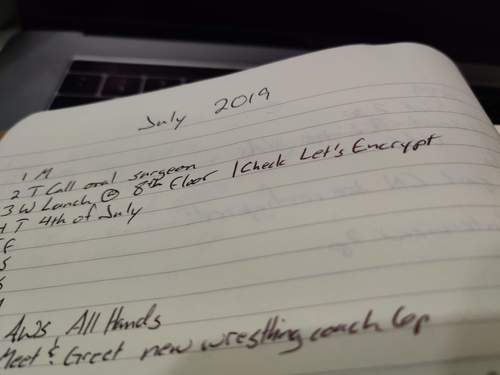 July 2019
1 M
2 T Call oral surgeon
3 W Lunch @ 8th Floor / Check Let's Encrypt
4 T 4th of July
F
S
S
All Hands
Meet & Greet new wrestling coach 6p